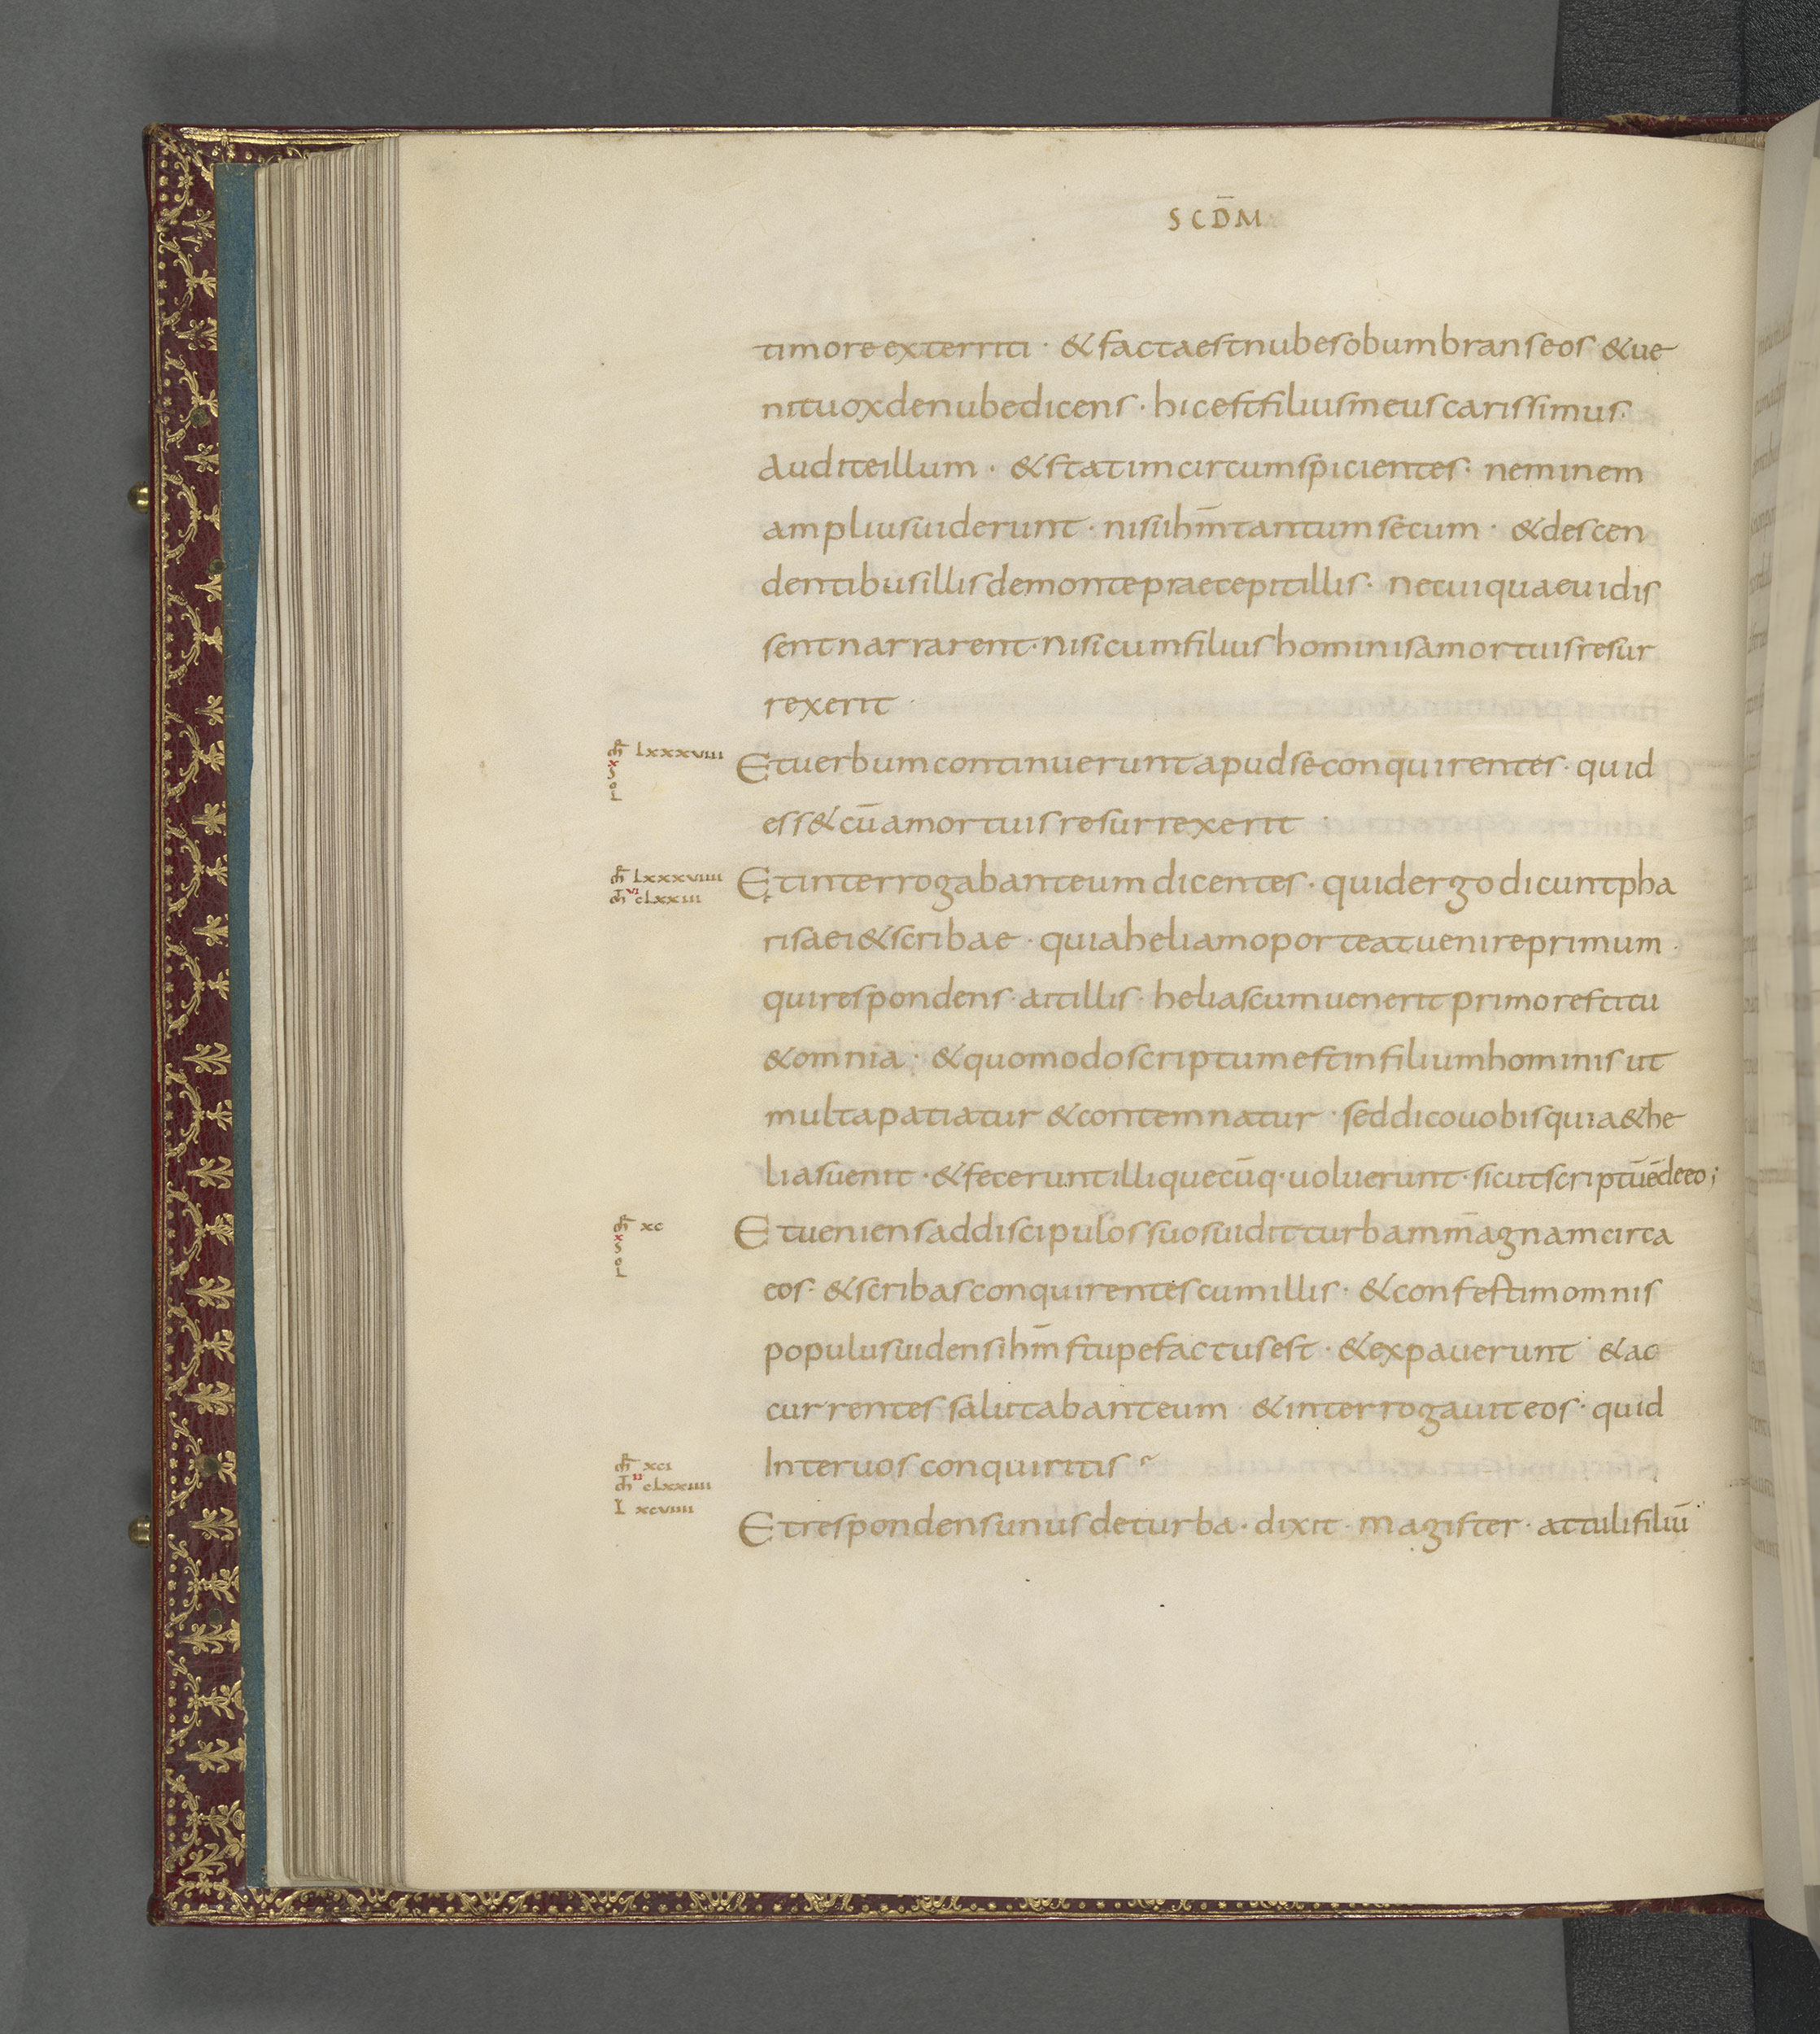 SCD̄M
timore exterriti · & facta est nubes obumbrans eos & ue
nit uox de nube dicens · hic est filius meus carissimus ·
Audite illum · & statim circumspicientes · neminem
amplius uiderunt · nisi ihm̄ tantum secum · & descen
dentibus illis de monte praecepit illis · ne cui quae uidis
sent narrarent · nisi cum filius hominis a mortuis resur
rexerit ·
lxxxviii
x
S
o
L
Et uerbum continuerunt apud se conquirentes · quid
ess& cū a mortuis resurrexerit ·
lxxxviiii
vi
clxxiii
Et interrogabant eum dicentes · quid ergo dicunt pha
risaei & scribae · quia heliam oporteat uenire primum ·
qui respondens · ait illis · helias cum uenerit primo restitu
& omnia · & quomodo scriptum est in filium hominis ut
multa patiatur & contemnatur · sed dico uobis quia & he
lias uenit · & fecerunt illi quecūq · uoluerunt · sicut scriptū ē de eo ;
xc
x
S
o
L
Et ueniens ad discipulos suos uidit turbam magnam circa
eos · & scribas conquirentes cum illis · & confestim omnis
populus uidens ihm̄ stupefactus est · & expauerunt · & ac
currentes salutabant eum & interrogauit eos · quid
Inter uos conquiritis
xci
clxxiiii
L xcviiii
Et respondens unus de turba · dixit · magister · attuli filiū